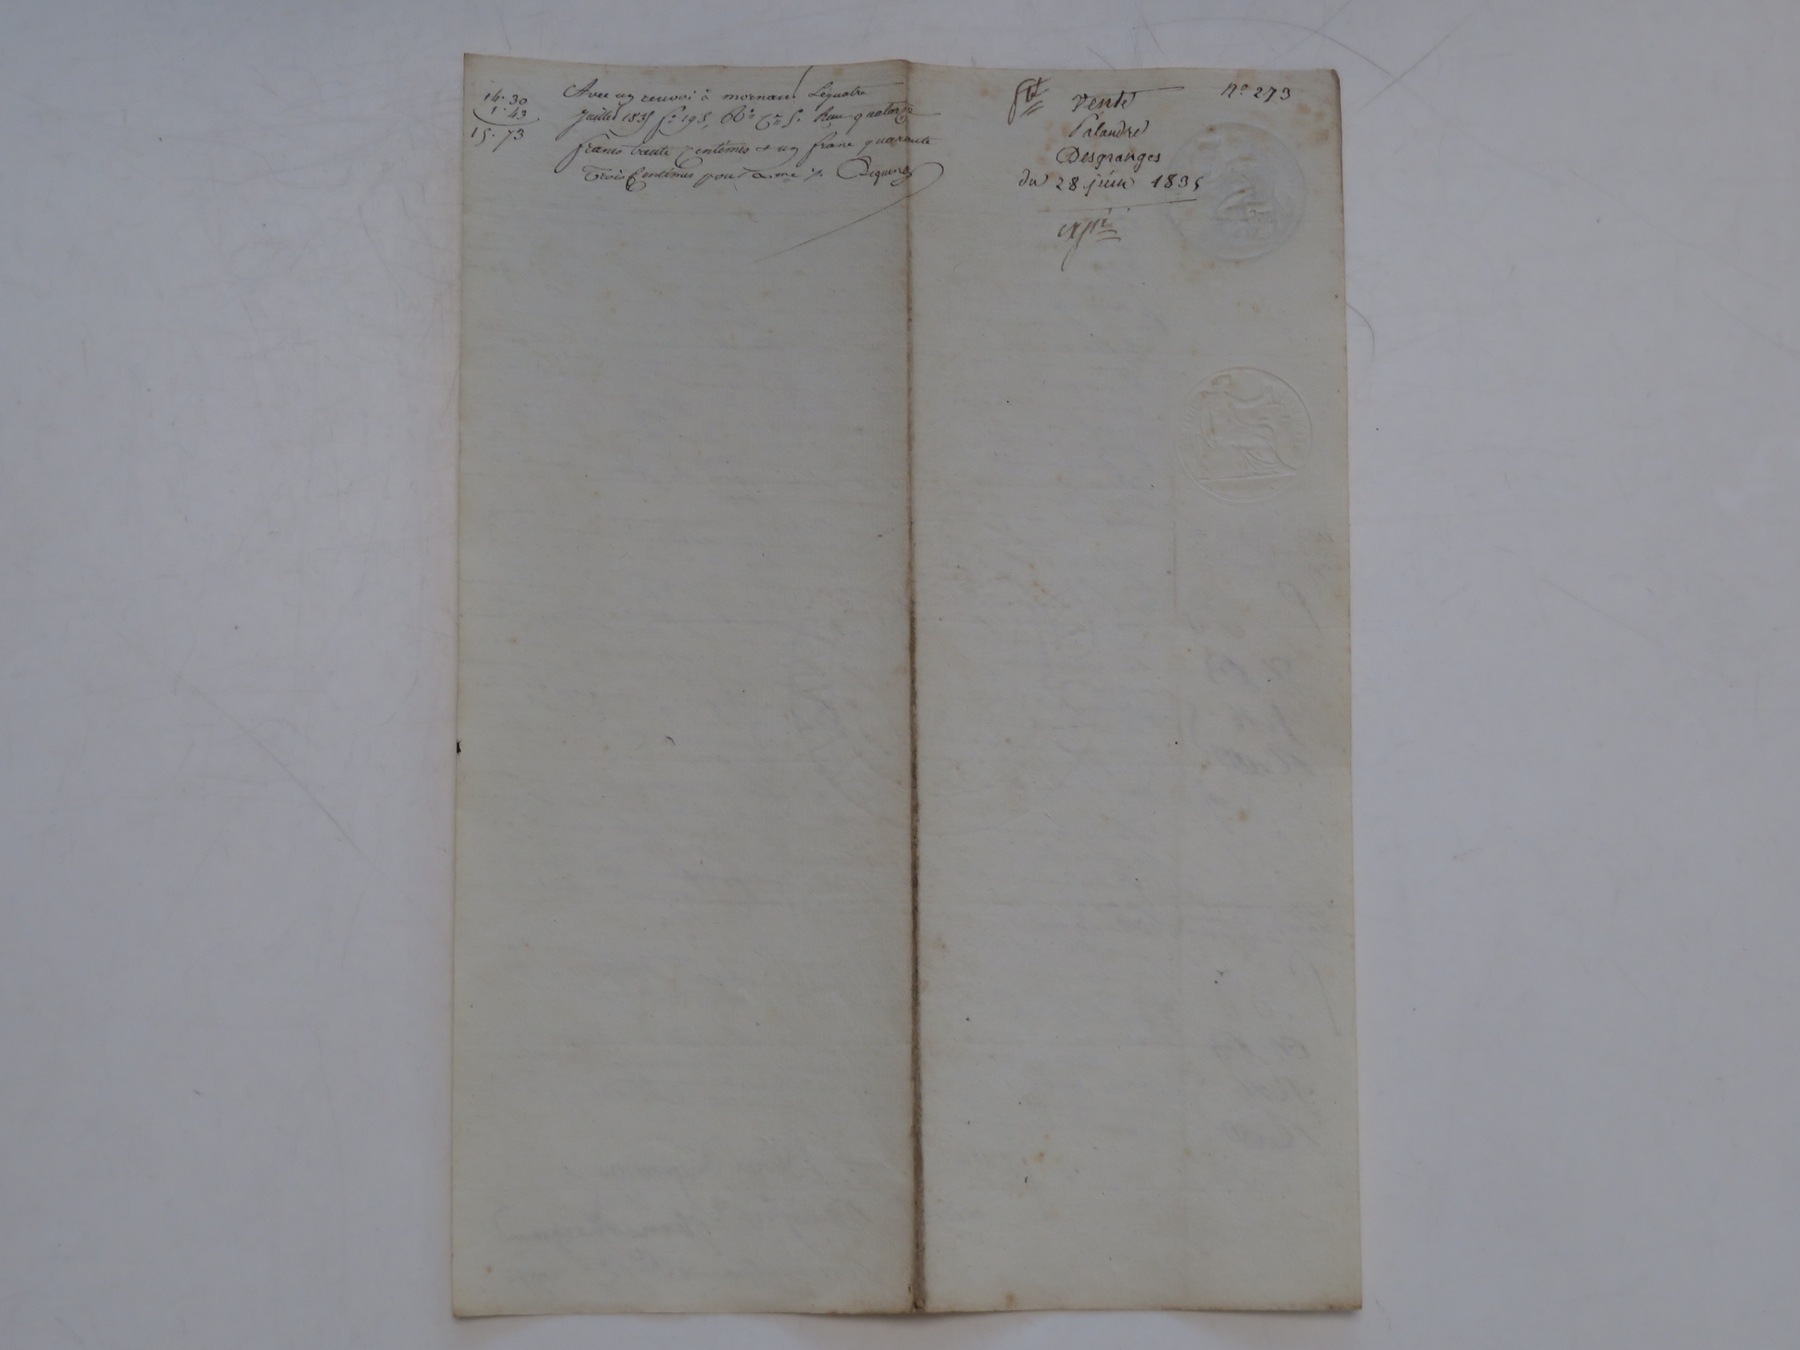 14.30
1.43
15.73
avec un renvoi à mornant Le quatre
juillet 1835 f° 195, Reçu quatorze
francs trente centimes & un franc quarante
Trois Centimes pour
N° 273
Vente
Palandre
Desgranges
du 28 juin 1835